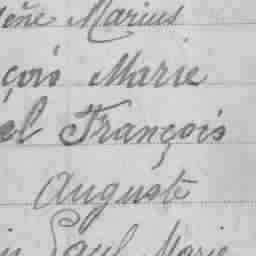 Marius
çois Marie
el François
Auguste
Paul Marie